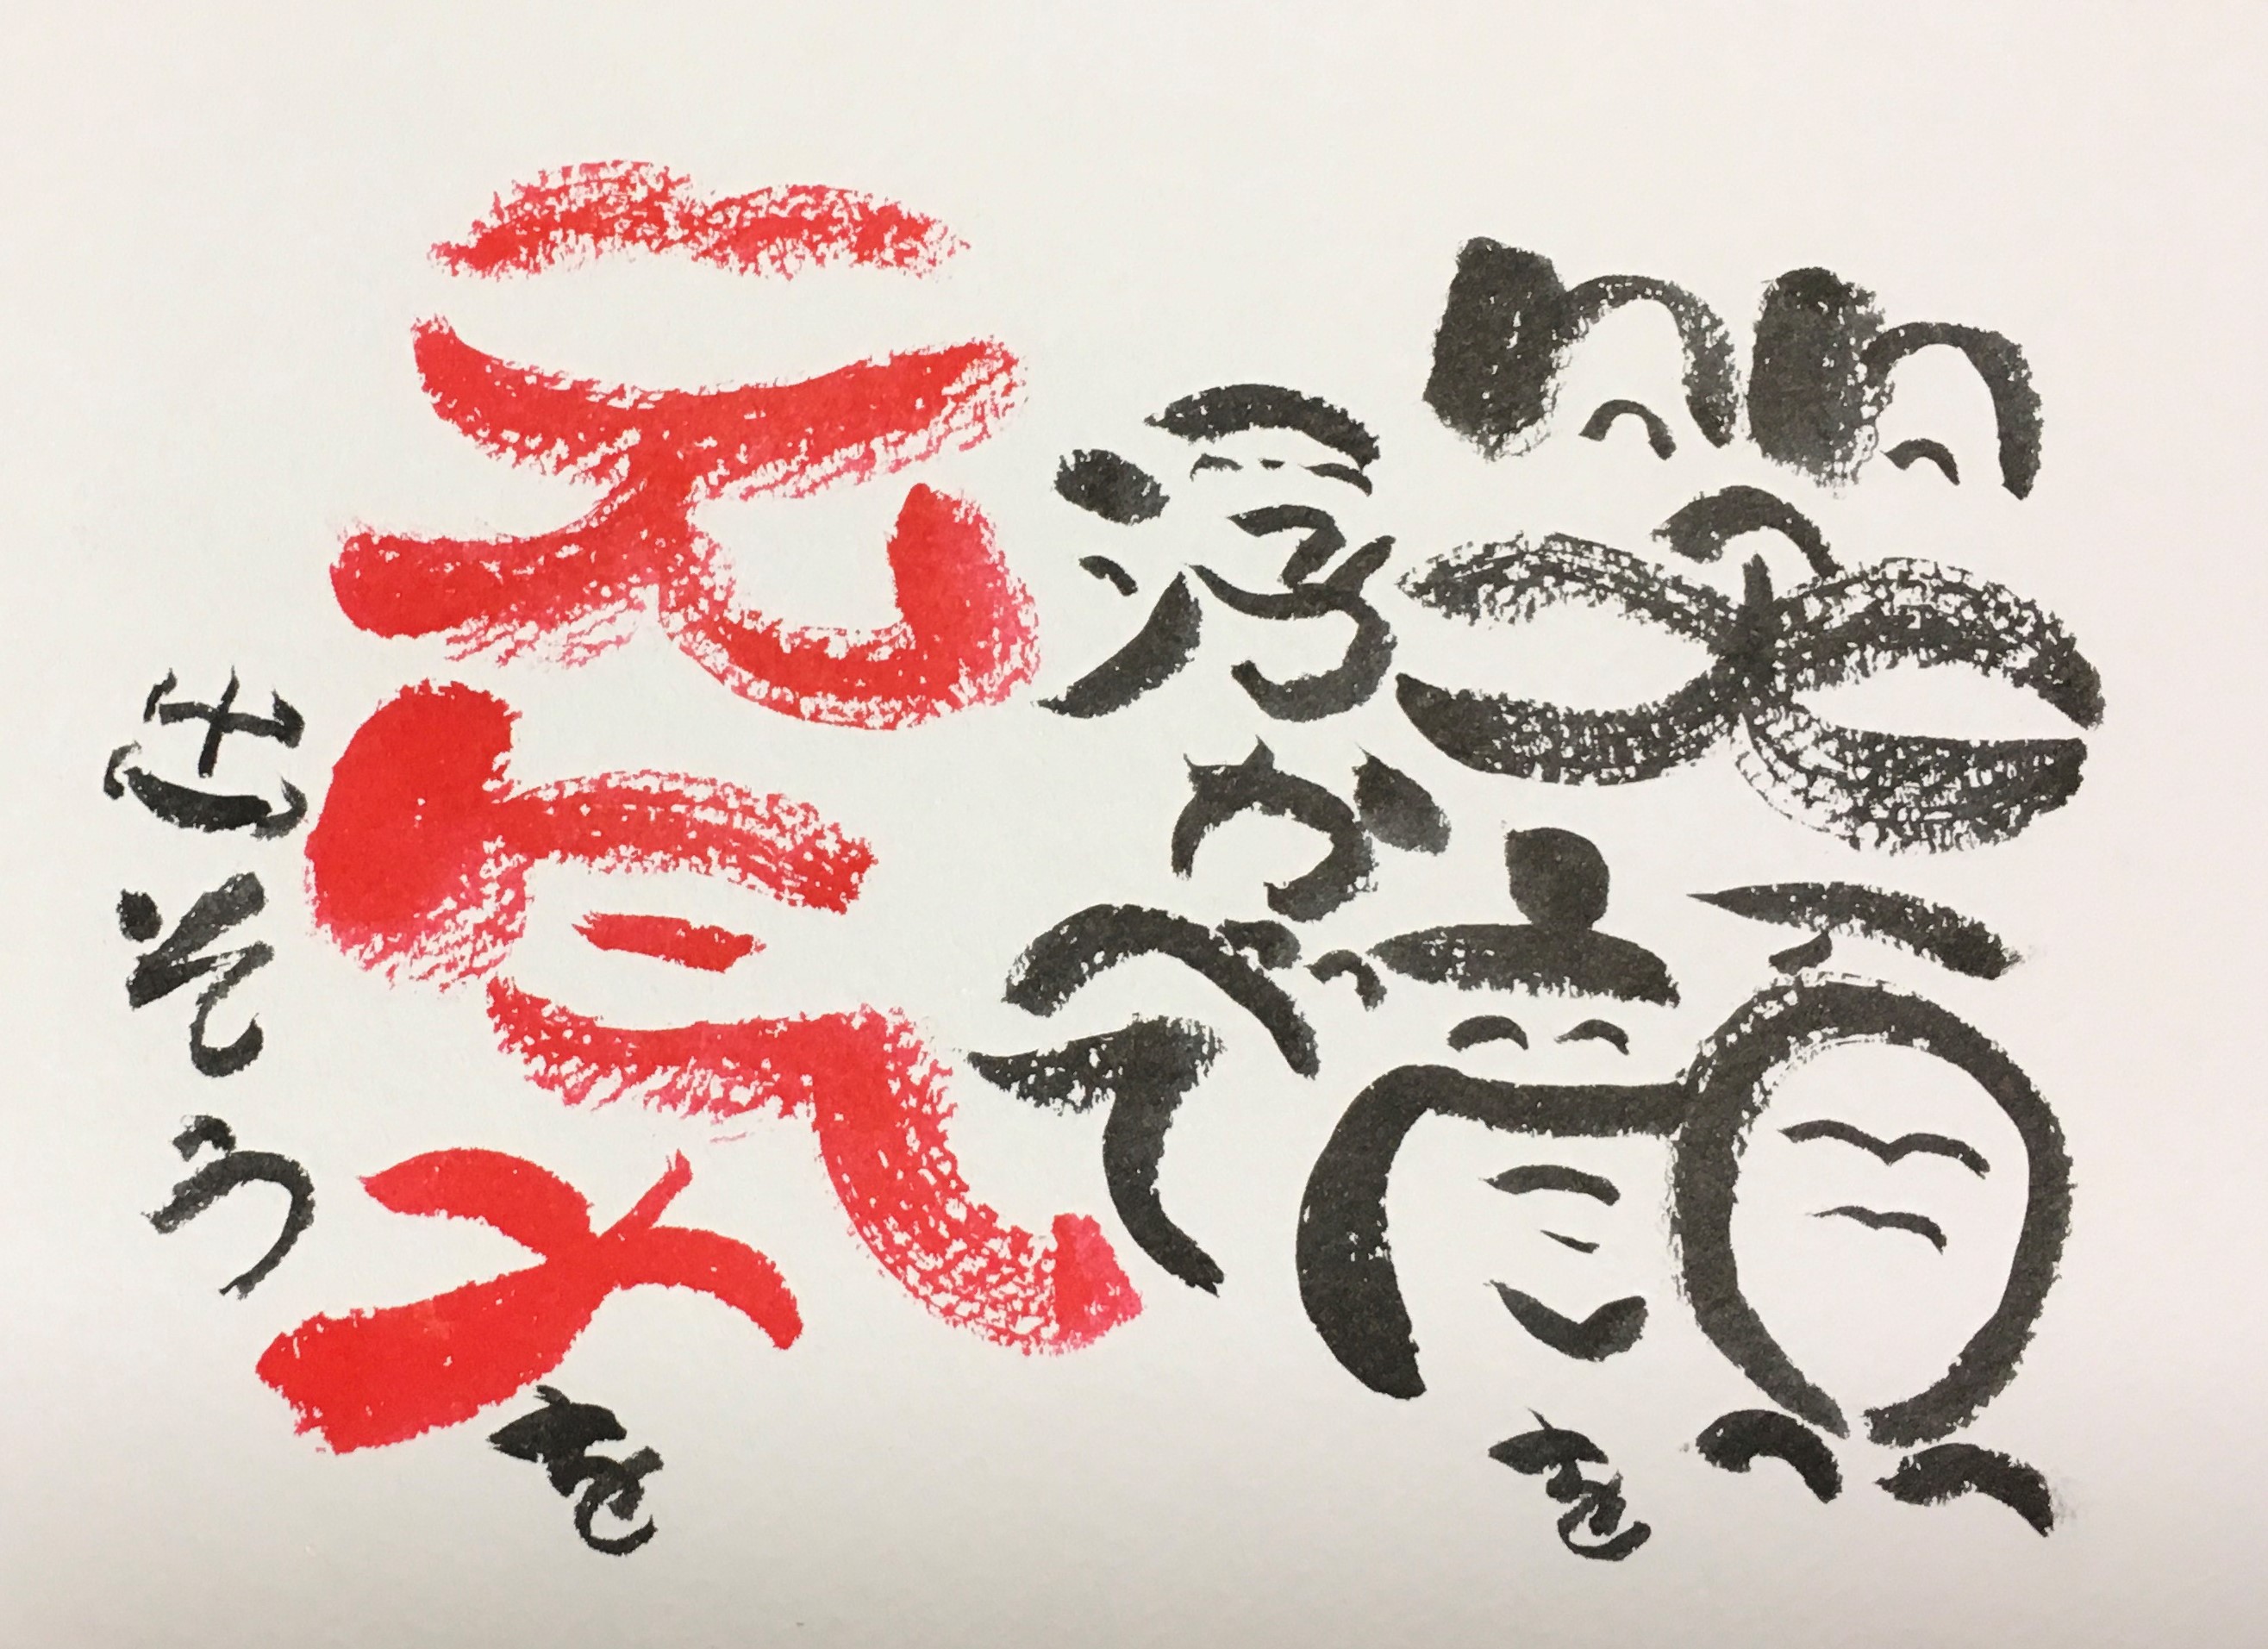 笑顔を
浮かべて
元気を
出そう